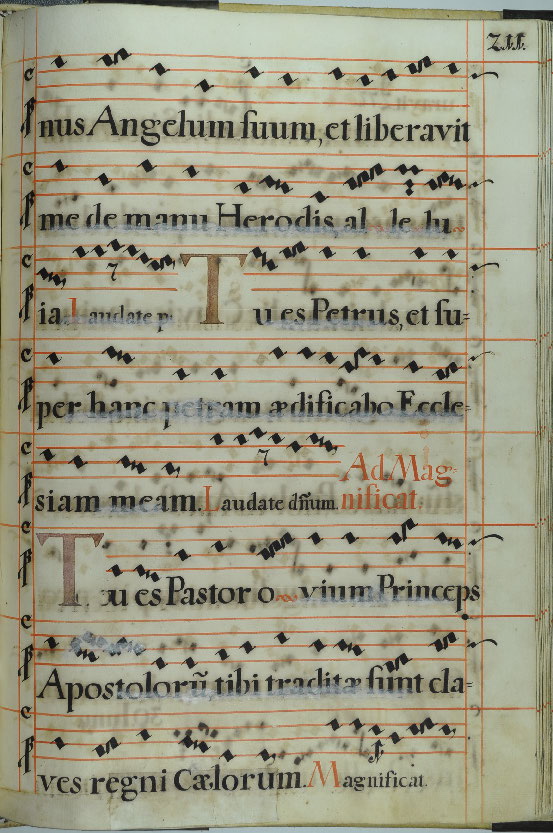 211.
nus Angelum suum, et liberavit
me de manu Herodis, al le lu-
ia. Laudate p T u es Petrus, et su=
per hanc petram ædificabo Eccle=
siam meam. Laudate dñum. Ad Mag-
nificat.
Tu es Pastor o vium Princeps
Apostolorũ, tibi traditæ sunt cla=
ves regni Cælorum. Magnificat.